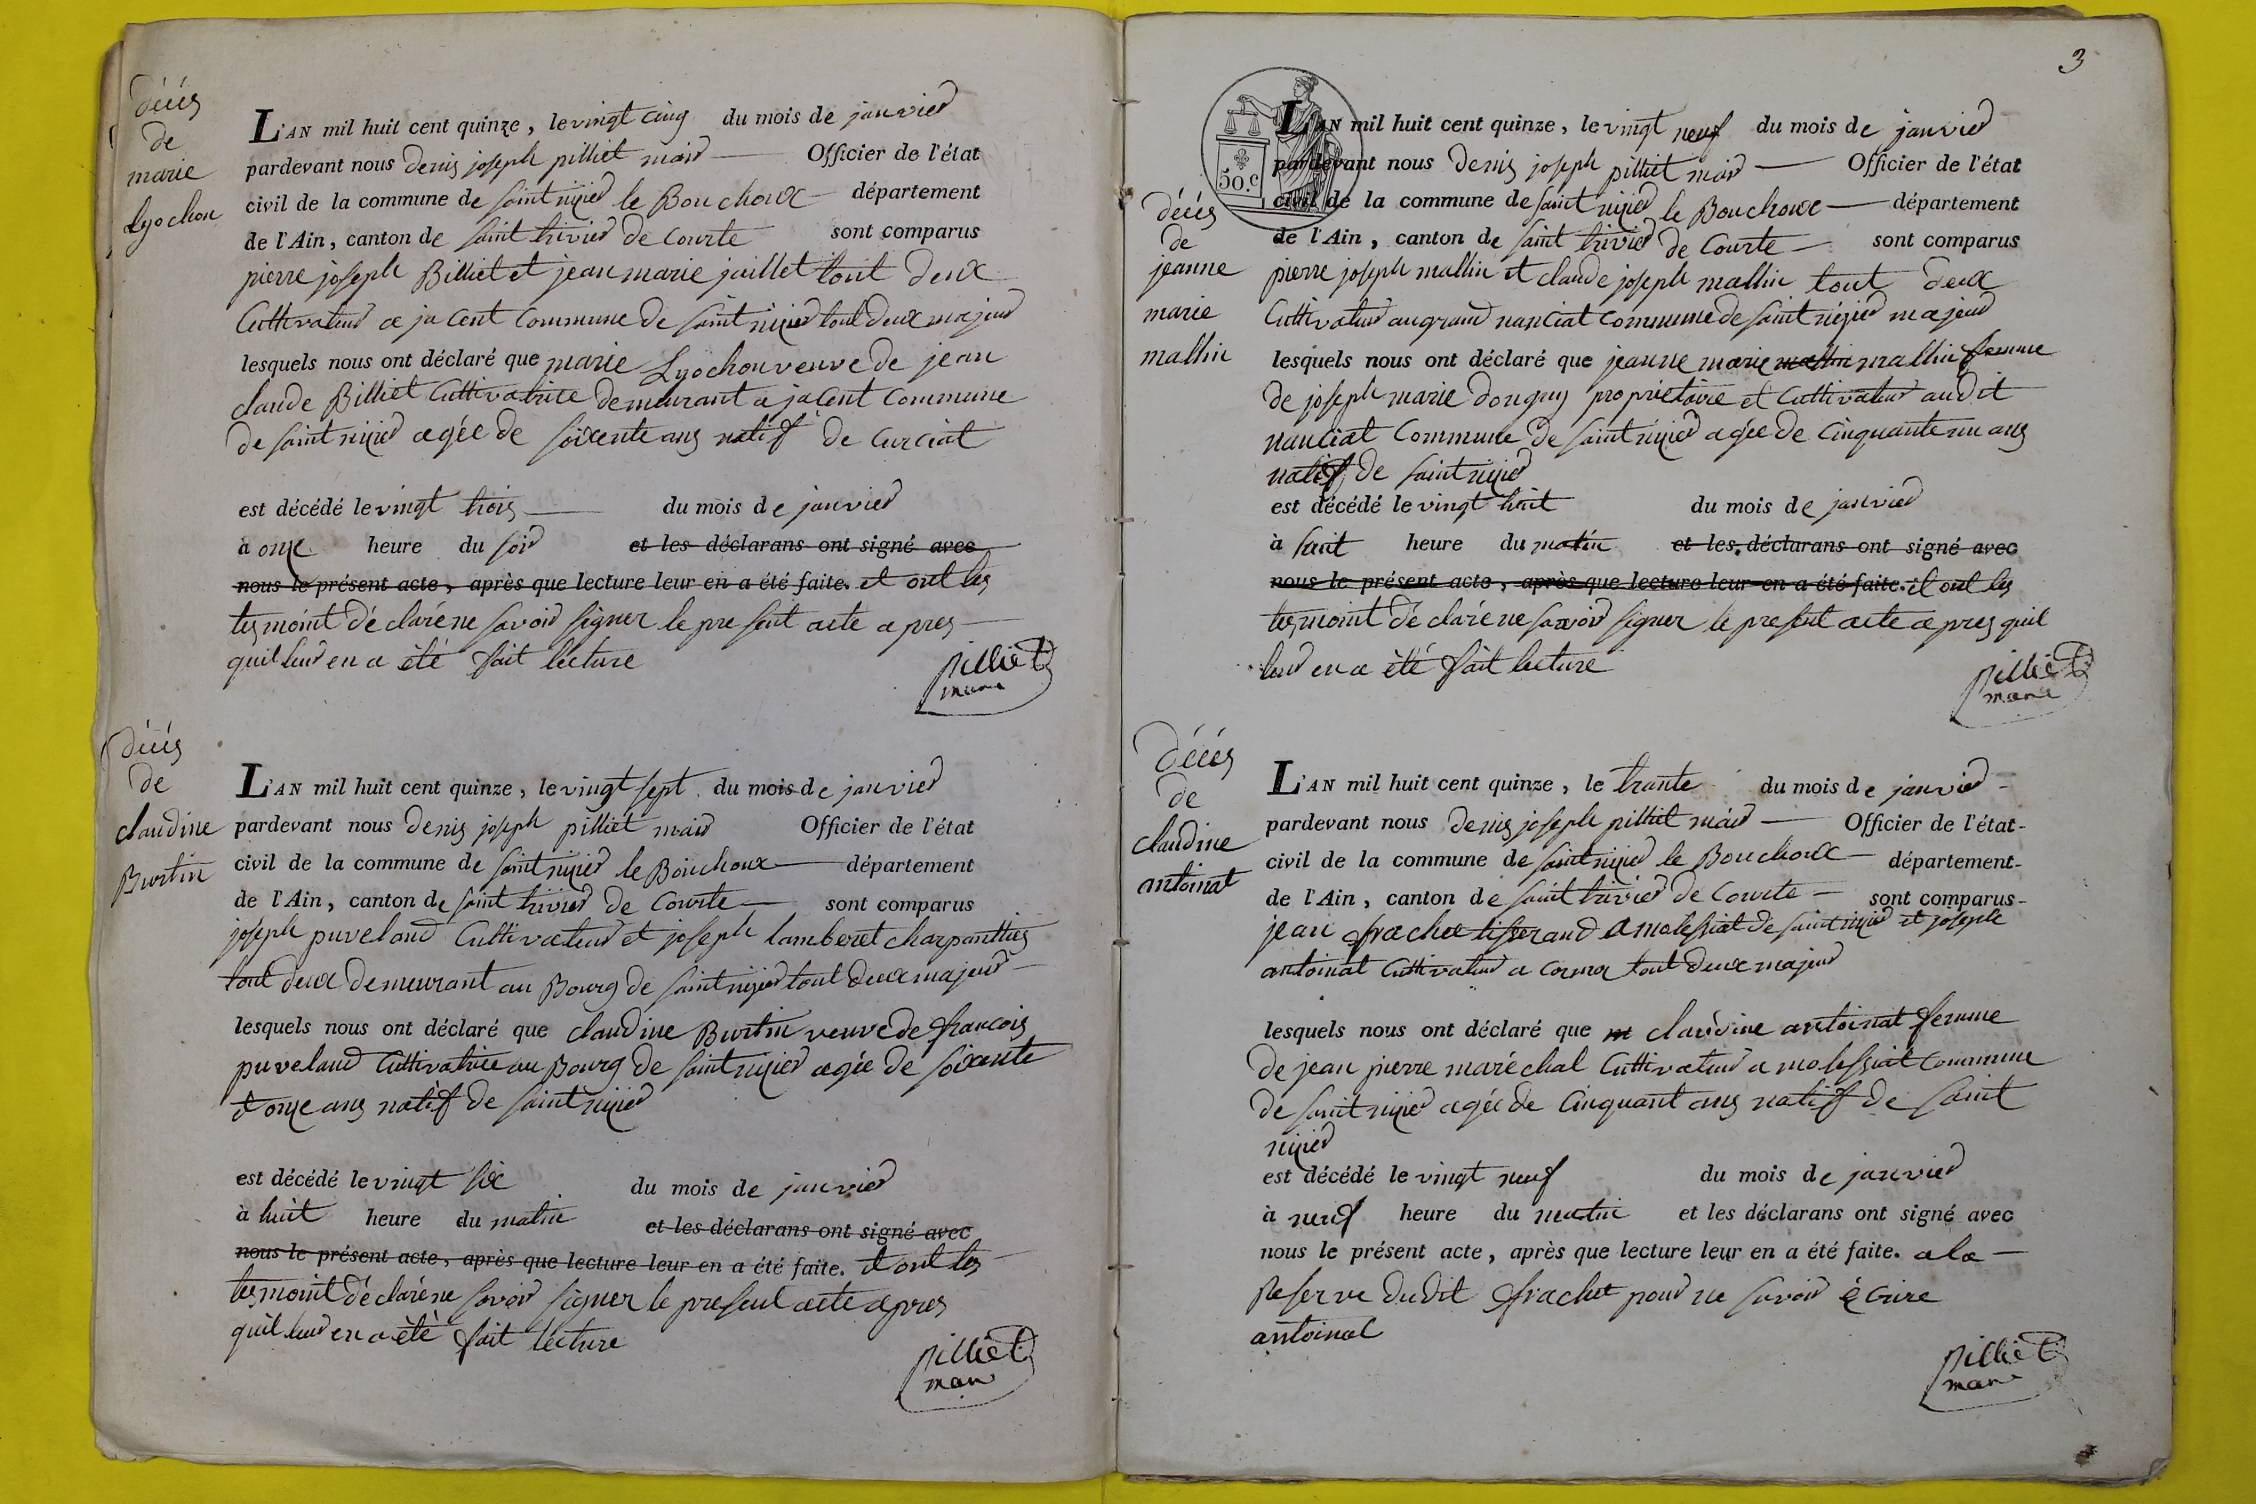 décés
de
marie
Lyochon
L'AN mil huit cent quinze, le vingt cinq du mois de janvier
pardevant nous denis joseph pilliet maire Officier de l'état
civil de la commune de saint nizier le Bouchoux département
de l'Ain, canton de saint trivier de Courte sont comparus
pierre joseph Billiet et jean marie jaillet tout deux
Cultivateur a jacent Commune de saint nizier tout deux majeur
lesquels nous ont déclaré que marie Lyochon veuve de jean
claude Billiet Cultivatrice demeurant a jacent Commune
de saint nizier agée de soixente ans natif de Curciat
est décédé le vingt trois du mois de janvier
à onze heure du soir et les déclarans ont signé avec
nous le présent acte, après que lecture leur en a été faite. et ont les
tesmoint déclaré ne savoir signer le present acte apres
quil leur en a été fait lecture
pilliet
maire
décés
de
claudine
Burtin
L'AN mil huit cent quinze, le vingt sept du mois de janvier
pardevant nous denis joseph pilliet maire Officier de l'état
civil de la commune de saint nizier le Bouchoux département
de l'Ain, canton de saint trivier de Courte sont comparus
joseph puveland Cultivateur et joseph lamberet charpanttier
tout deux demeurant au Bourg de saint nizier tout deux majeur
lesquels nous ont déclaré que claudine Burtin veuve de francois
puveland Cultivatrice au Bourg de saint nizier agée de soixente
et onze ans natif de saint nizier
est décédé le vingt six du mois de janvier
à huit heure du matin et les déclarans ont signé avec
nous le présent acte, après que lecture leur en a été faite. et ont les
tesmoint déclaré ne savoir signer le present acte apres
quil leur en a été fait lecture
pilliet
maire
3
50.c
décés
de
jeanne
marie
mallin
L'AN mil huit cent quinze, le vingt neuf du mois de janvier
pardevant nous denis joseph pilliet maire Officier de l'état
civil de la commune de saint nizier le Bouchoux département
de l'Ain, canton de saint trivier de Courte sont comparus
pierre joseph mallin et claude joseph mallin tout deux
Cultivateur au grand nanciat commune de saint nizier majeur
lesquels nous ont déclaré que jeanne marie mallin mallin femme
de joseph marie donguy proprietaire et Cultivateur audit
nanciat Commune de saint nizier agée de Cinquante un ans
natif de saint nizier
est décédé le vingt huit du mois de janvier
à huit heure du matin et les déclarans ont signé avec
nous le présent acte, après que lecture leur en a été faite. et ont les
tesmoint déclaré ne savoir signer le present acte apres quil
leur en a été fait lecture
pilliet
maire
décés
de
claudine
antoinat
L'AN mil huit cent quinze, le trante du mois de janvier
pardevant nous denis joseph pilliet maire Officier de l'état
civil de la commune de saint nizier le Bouchoux département
de l'Ain, canton de saint trivier de Courte sont comparus
jean frachet tisserand a molessiat de saint nizier et joseph
antoinat Cultivateur a Cormoz tout deux majeur
lesquels nous ont déclaré que m claudine antoinat femme
de jean pierre maréchal Cultivateur a molessiat Commune
de saint nizier agée de Cinquant ans natif de saint
nizier
est décédé le vingt neuf du mois de janvier
à neuf heure du matin et les déclarans ont signé avec
nous le présent acte, après que lecture leur en a été faite. a la
Reserve dudit frachet pour ne savoir écrire
antoinat
pilliet
maire